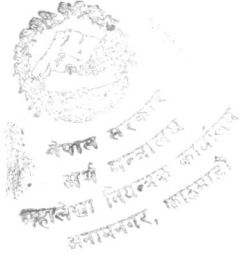 नेपाल सरकार
अर्थ मन्त्रालय
महालेखा नियन्त्रक कार्यालय
अनामनगर, काठमाडौं